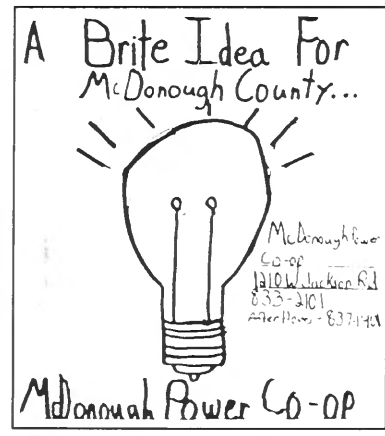 A Brite Idea For
McDonough County...
McDonough Power
Co-op
1210 W. Jackson Rd
833-2101
After Hours -
McDonough Power Co-op